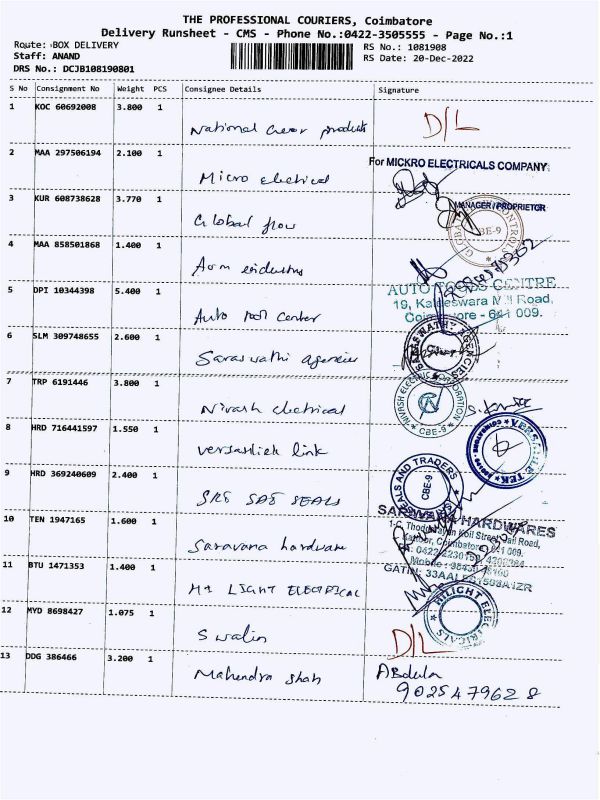 THE PROFESSIONAL COURIERS, Coimbatore
Delivery Runsheet - CMS - Phone No.:0422-3505555 - Page No.:1
Route: BOX DELIVERY
RS No.: 1081908
Staff: ANAND
RS Date: 20-Dec-2022
DRS No.: DCJB108190801
S No Consignment No Weight PCS Consignee Details Signature
1 KOC 60692008 3.800 1
National Gear products D/L
2 MAA 297506194 2.100 1
For MICKRO ELECTRICALS COMPANY
Micro electrical
3 KUR 608738628 3.770 1
MANAGER/PROPRIETOR
Global flow
GLOBAL CONTROLS CBE-9
4 MAA 858501868 1.400 1
Arm industries
5 DPI 10344398 5.400 1
AUTO TOOLS CENTRE
19, Kaleeswara Mill Road,
Coimbatore - 641 009.
Auto tool center
6 SLM 309748655 2.600 1
Saraswathi agencies
SARASWATHY AGENCIES
7 TRP 6191446 3.800 1
Nivash electrical
NIVASH ELECTRIC CORPORATION CBE-9
8 HRD 716441597 1.550 1
link
VERSATILE TEK
9 HRD 369240609 2.400 1
SRI SAI SEALS
SEALS AND TRADERS CBE-9
10 TEN 1947165 1.600 1
HARDWARES
Saravana hardware
11 BTU 1471353 1.400 1
HI LIGHT ELECTRICAL
HILIGHT ELECTRICALS
12 MYD 8698427 1.075 1
Swalin D/L
13 DDG 386466 3.200 1
Mahendra shah
Abdula
9025479628